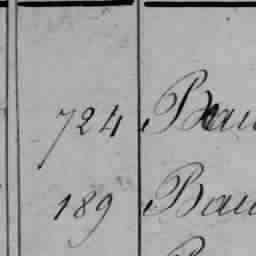 724 Bau
189 Bau